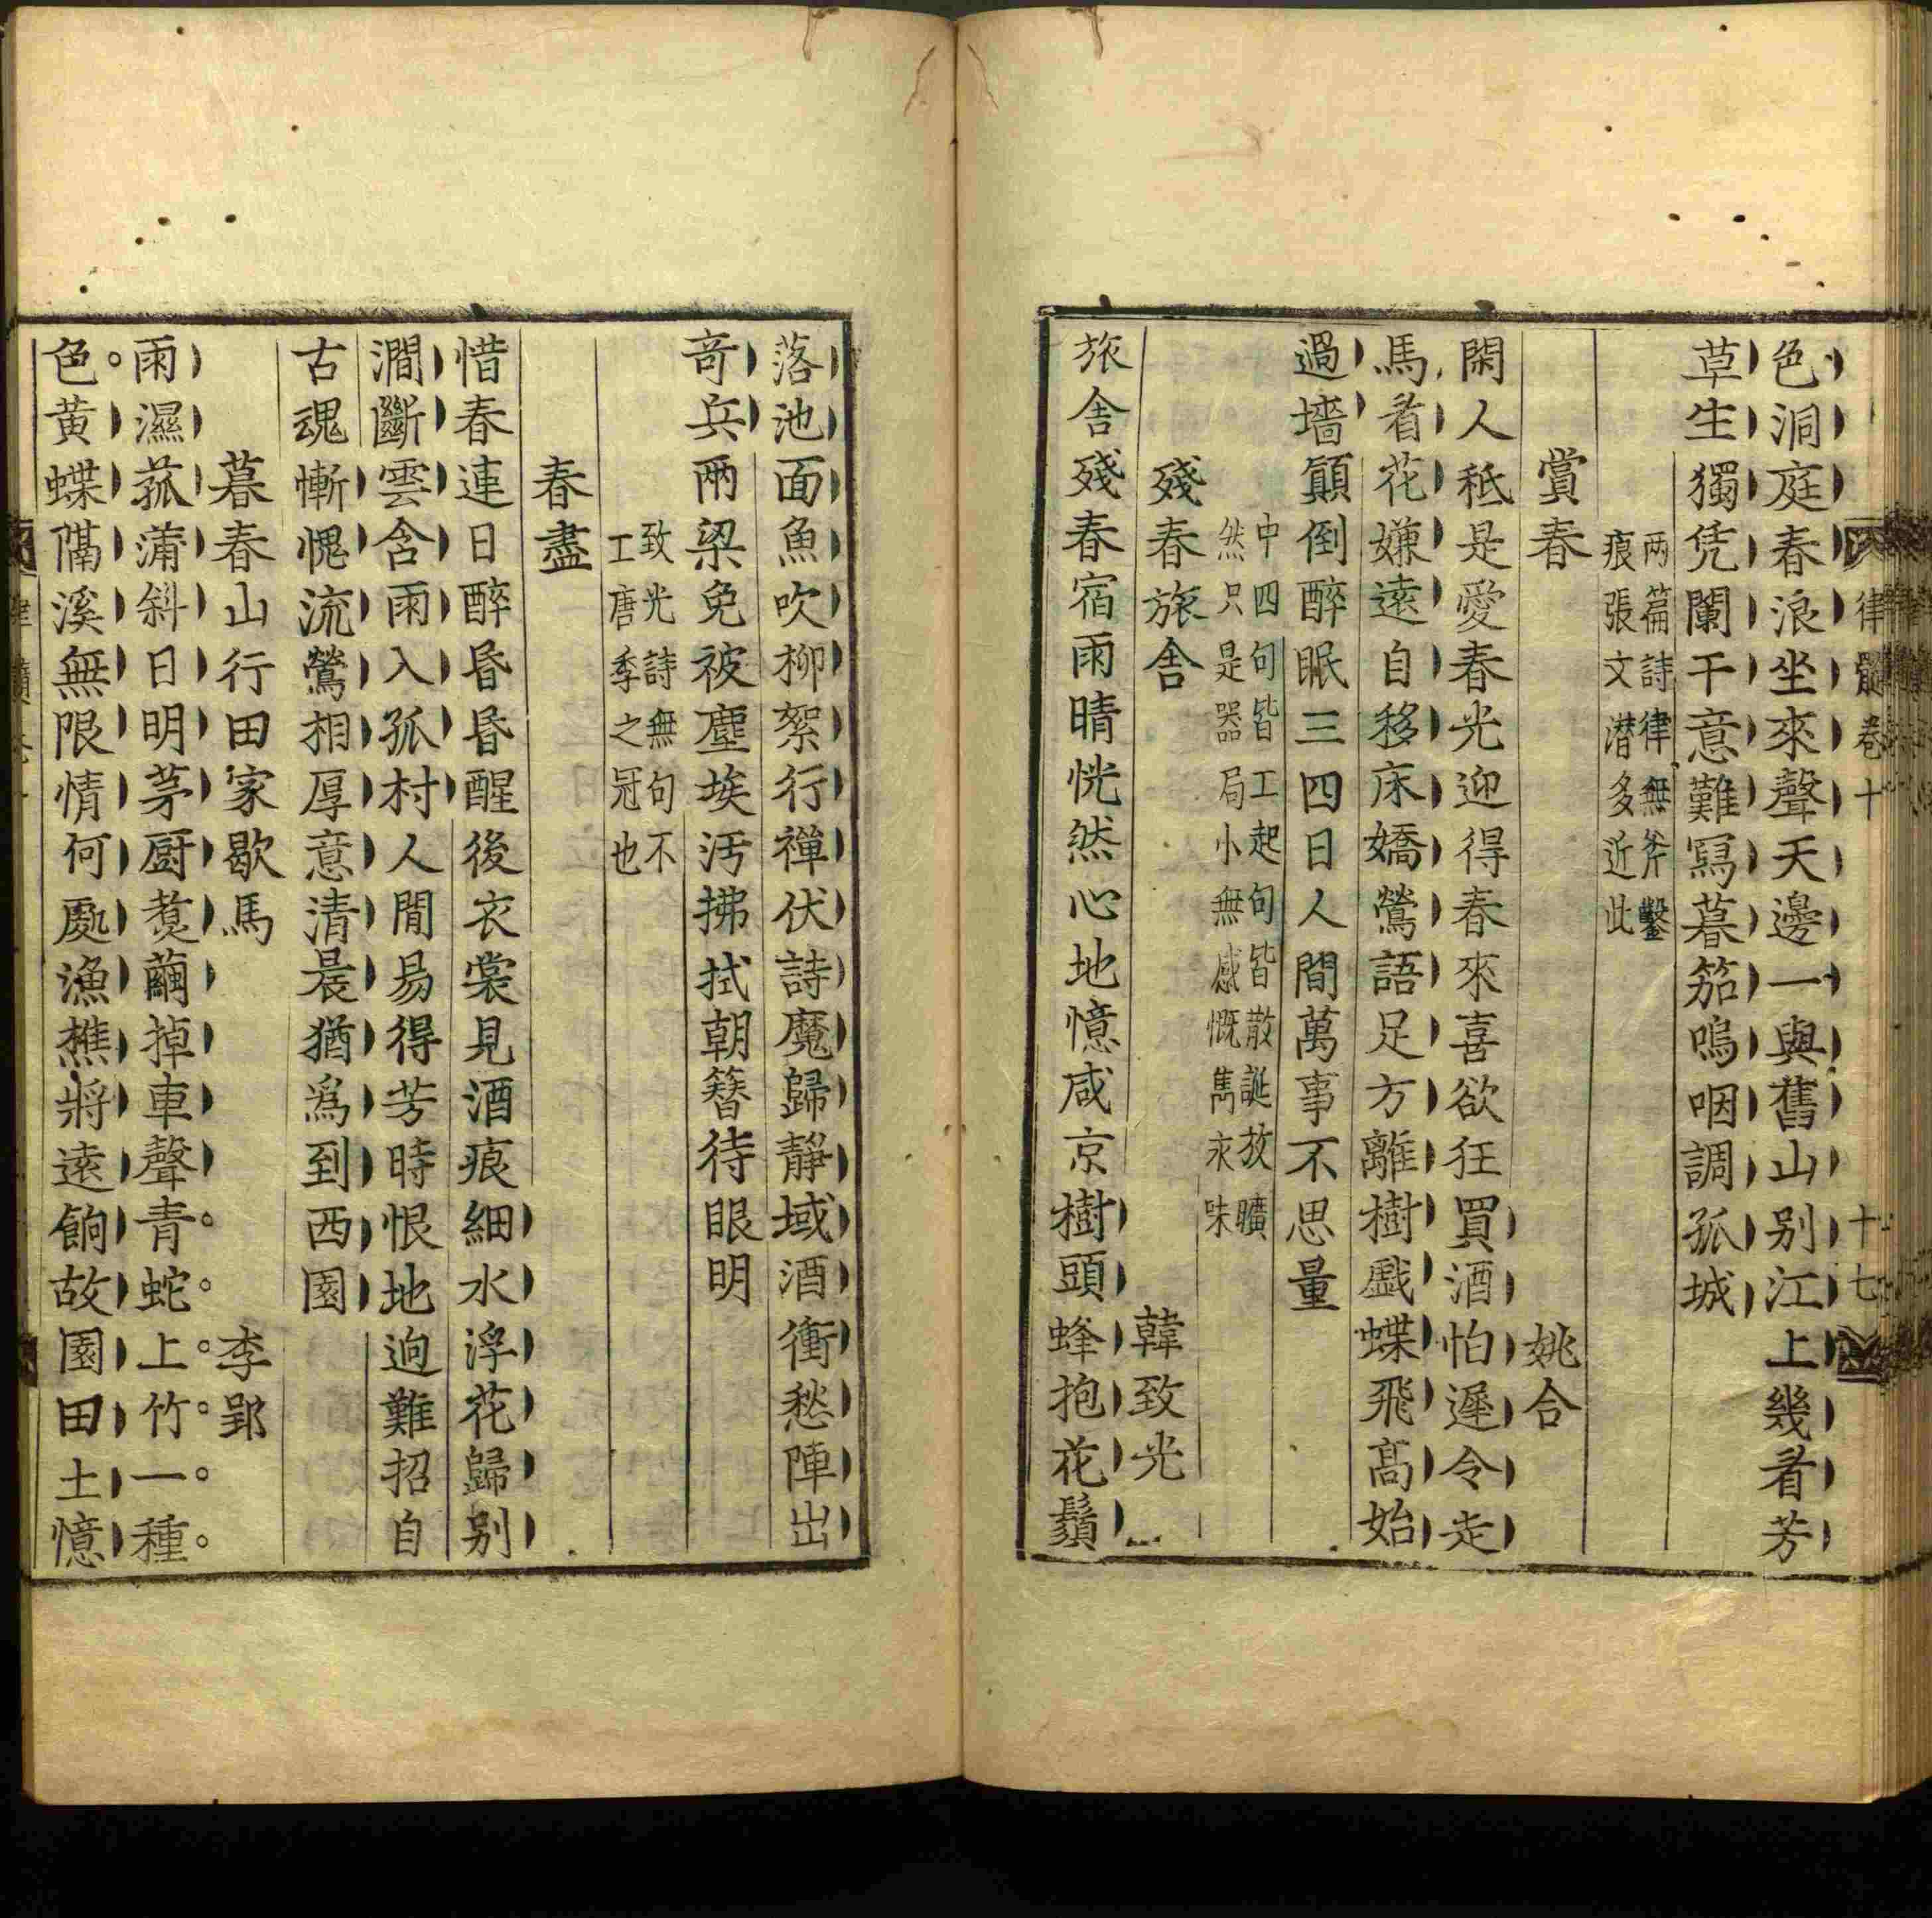 律髓卷十 十七
色洞庭春浪坐來聲天邊一與舊山别江上幾㸔芳
草生獨凭闌干意難寫暮笳嗚咽調孤城
两篇詩律無斧鑿
痕張文潜多近此
賞春 姚合
閑人秪是愛春光迎得春來喜欲狂買酒怕遲令走
馬㸔花嫌遠自移床嬌鶯語足方離樹戲蝶飛髙始
過墻顛倒醉眠三四日人間萬事不思量
中四句皆工起句皆散誕放曠
然只是器局小無感慨雋永味
殘春旅舍 韓致光
旅舍殘春宿雨晴恍然心地憶咸京樹頭蜂抱花鬚
落池面魚吹柳絮行禪伏詩魔歸靜域酒衝愁陣出
竒兵两梁免被塵埃汚拂拭朝簪待眼明
致光詩無句不
工唐季之冠也
春盡
惜春連日醉昏昏醒後衣裳見酒痕細水浮花歸别
澗斷雲含雨入孤村人閒易得芳時恨地逈難招自
古魂慚愧流鶯相厚意清晨猶爲到西園
暮春山行田家歇馬 李郢
雨濕菰蒲斜日明茅厨煑繭掉車聲青蛇上竹一種
色黄蝶隔溪無限情何處漁樵將遠餉故園田土憶